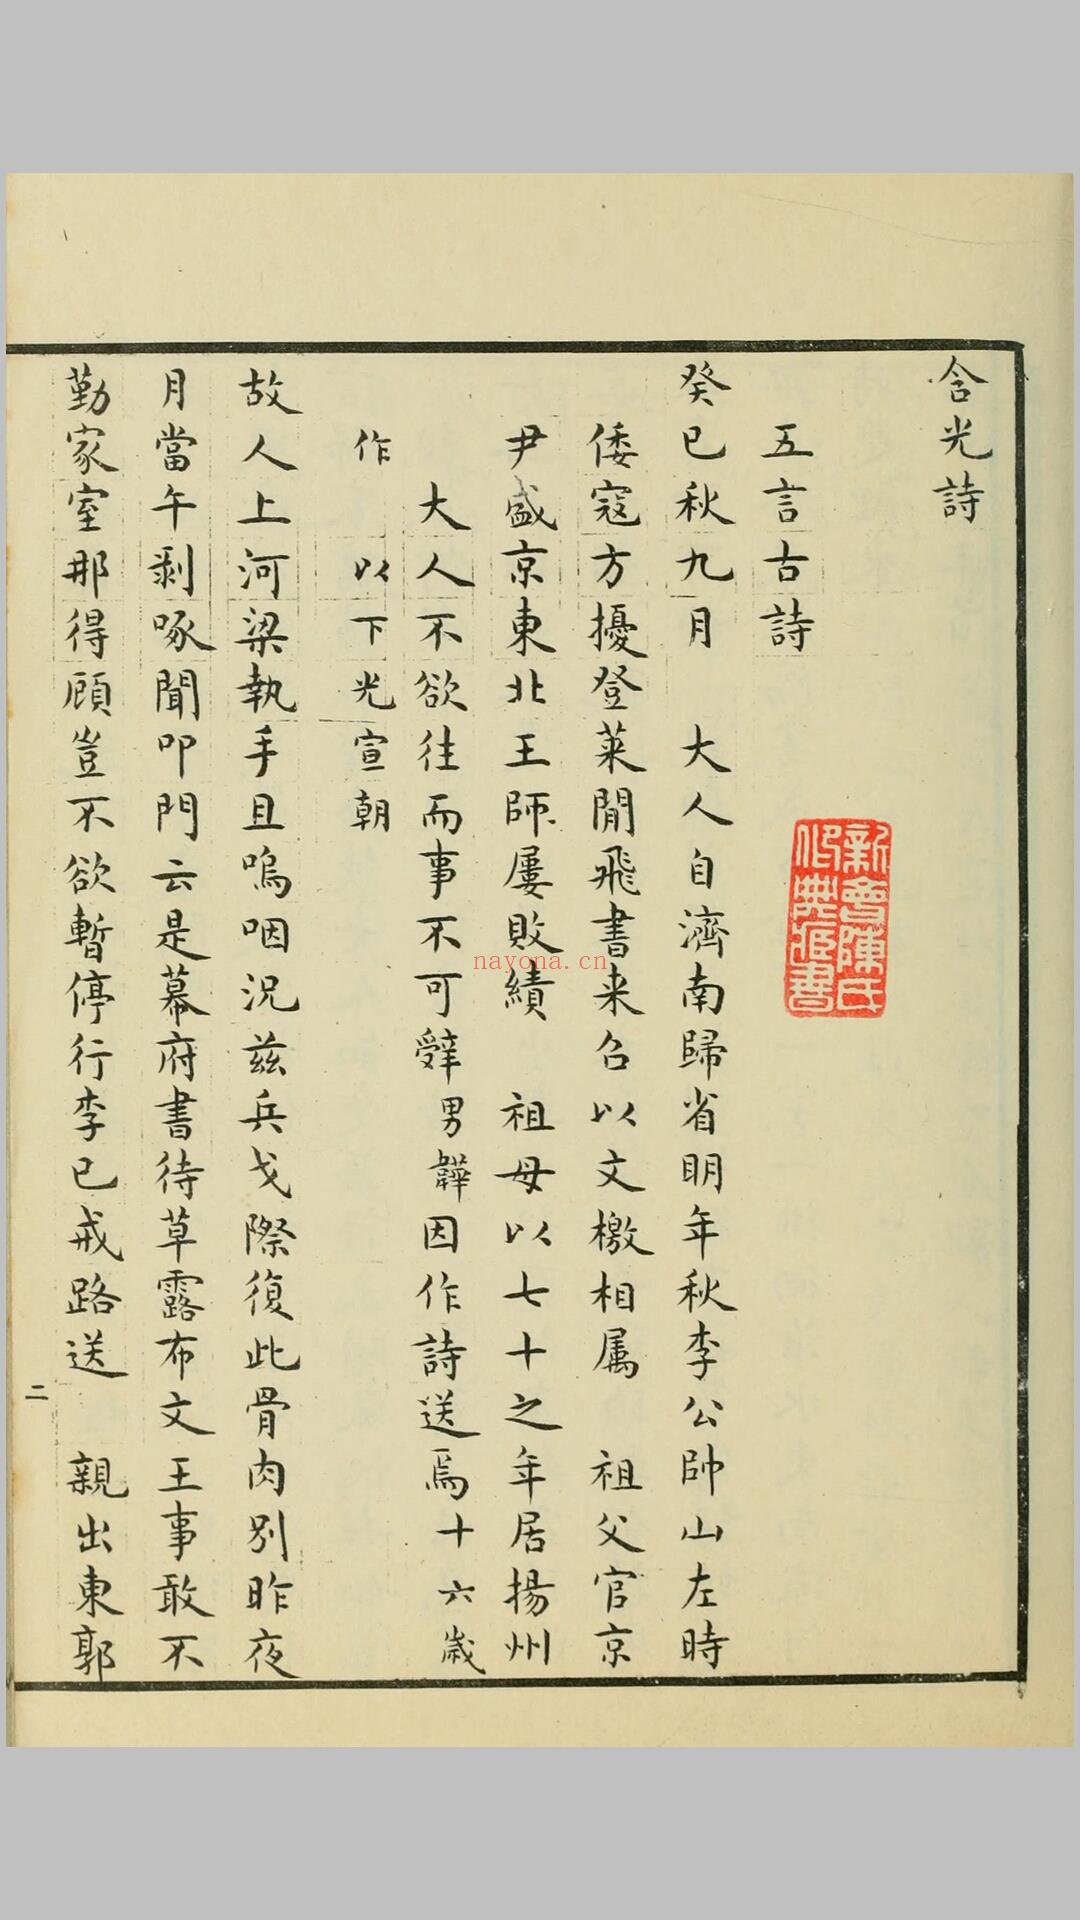 含光詩
五言古詩
癸巳秋九月　大人自濟南歸省明年秋李公帥山左時
倭寇方擾登萊閒飛書来召以文檄相属　祖父官京
尹盛京東北王師屢敗績　祖母以七十之年居揚州
大人不欲往而事不可辤男韡因作詩送焉十六歲
作　以下光宣朝
故人上河梁執手且嗚咽況兹兵戈際復此骨肉別昨夜
月當午剥啄聞叩門云是幕府書待草露布文王事敢不
勤家室那得顧豈不欲暫停行李已戒路送　親出東郭
二
新會陳氏
nayona.cn